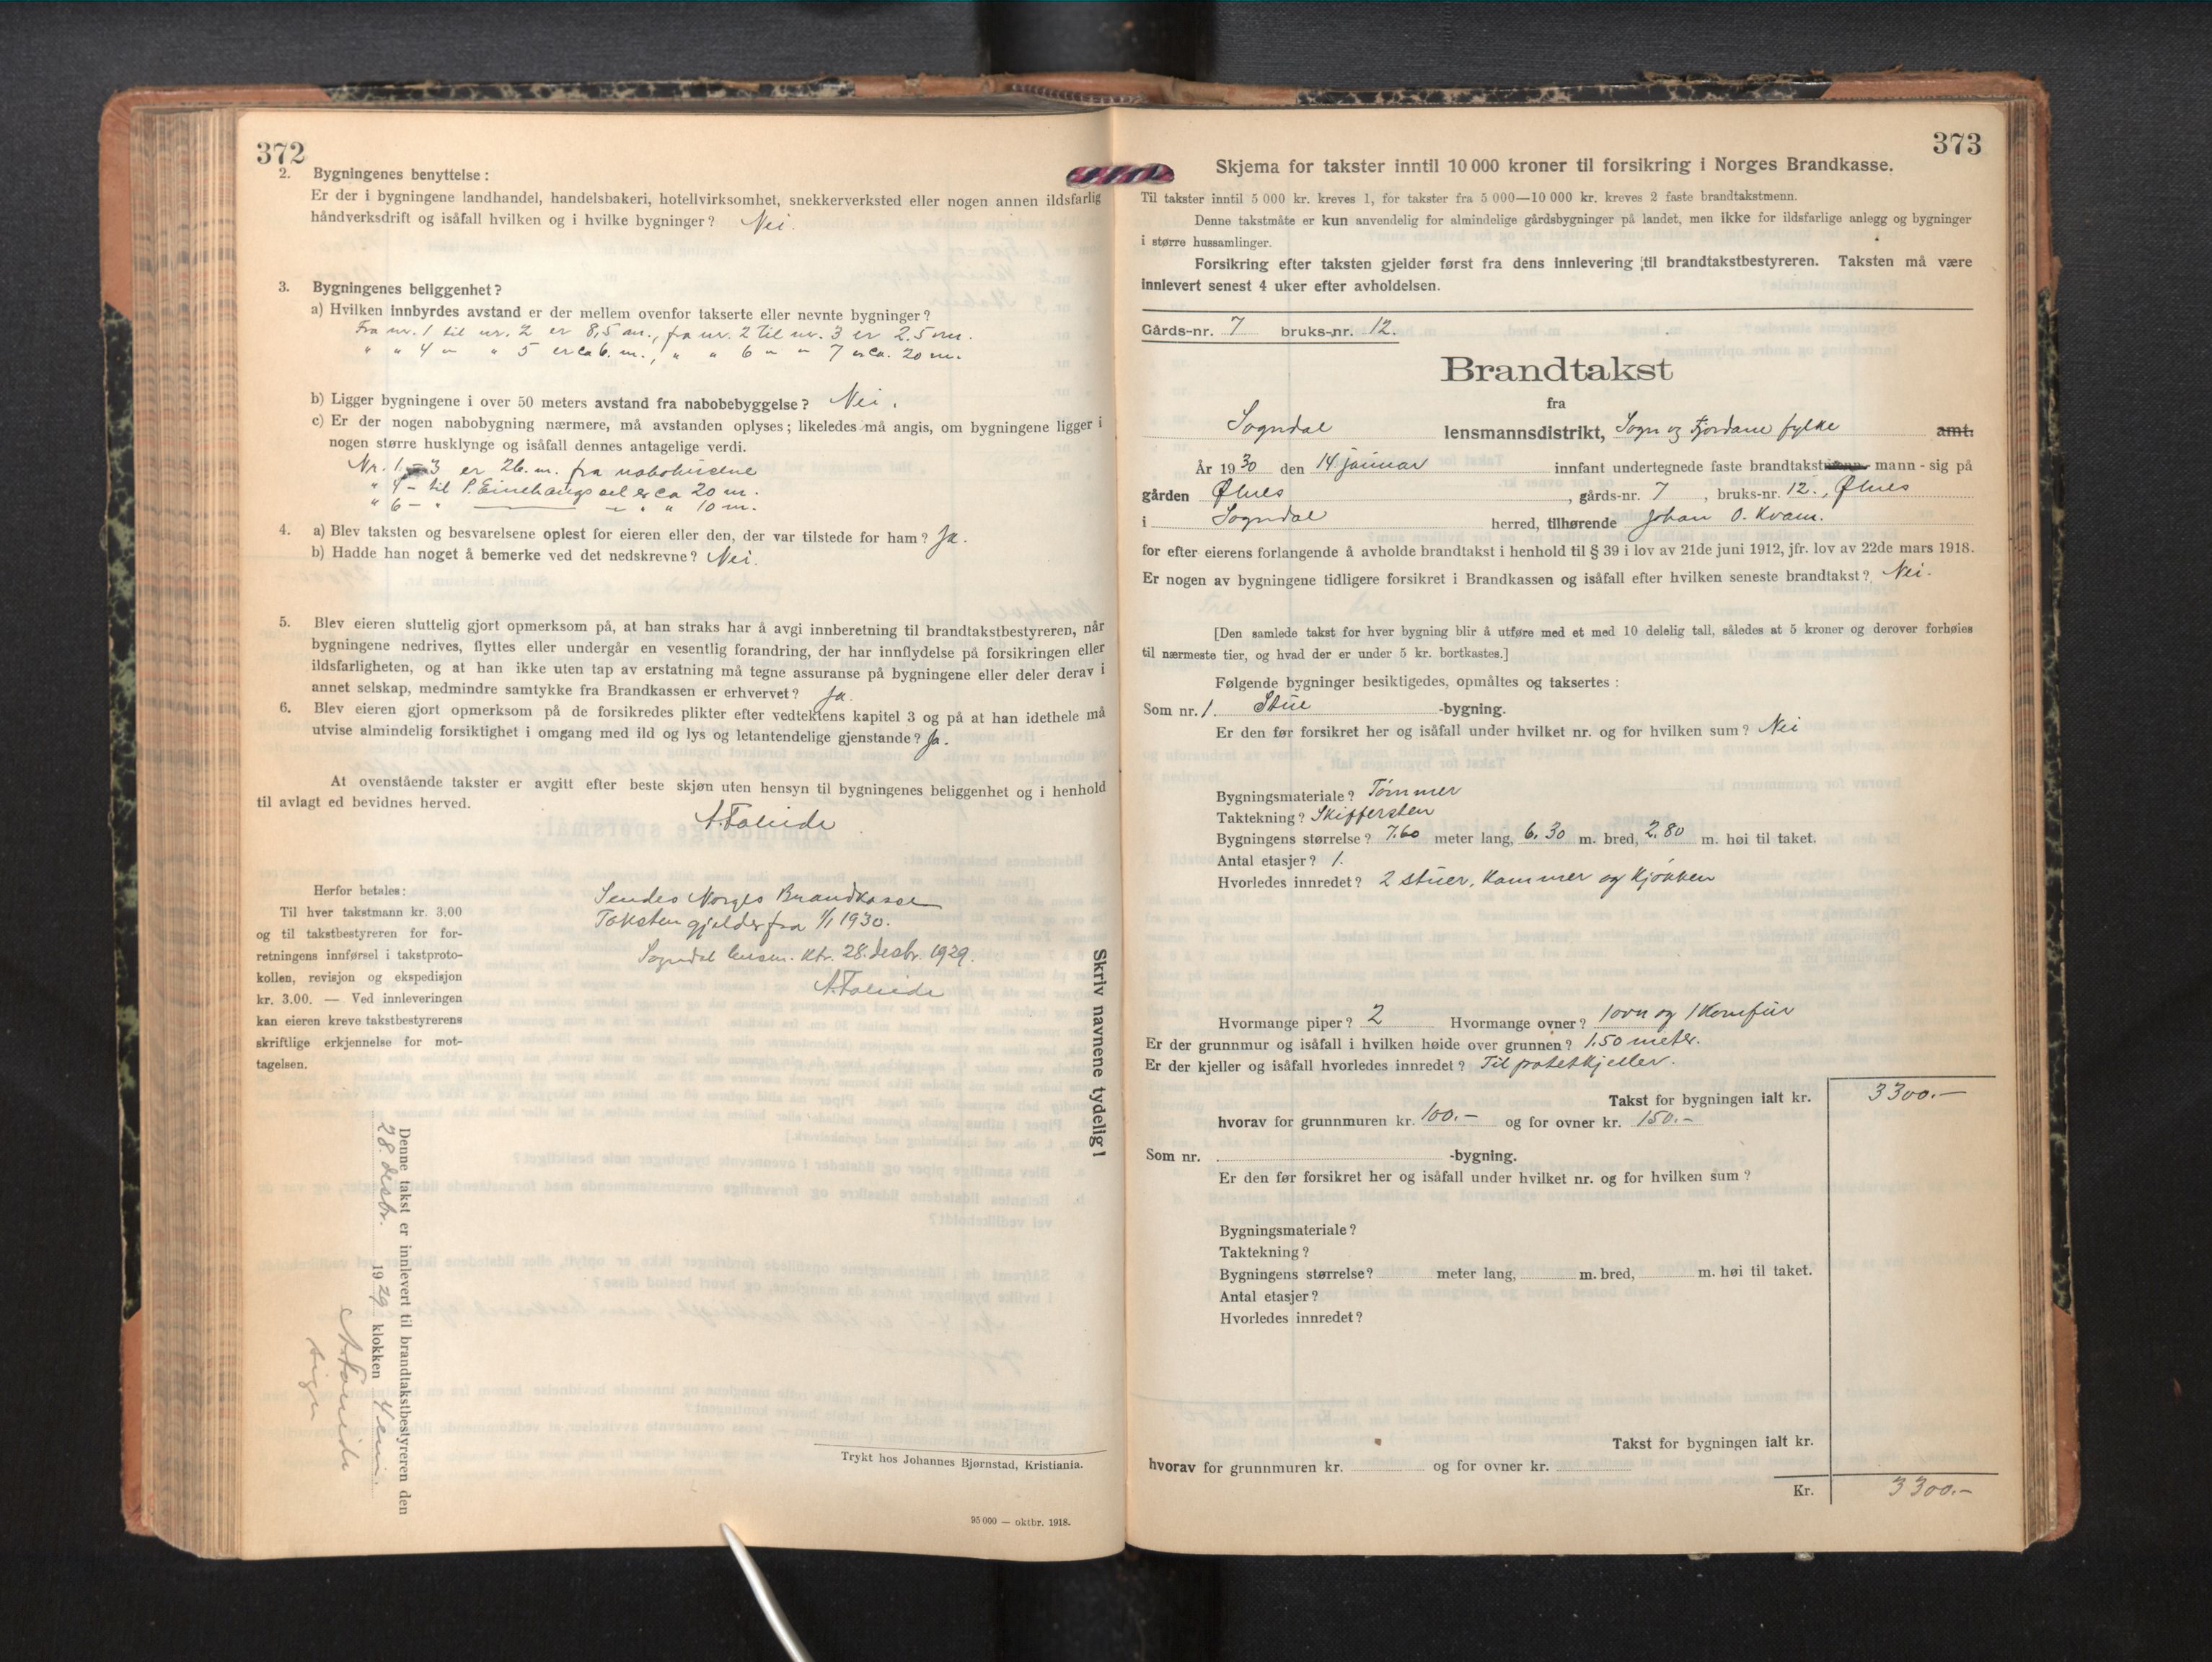 372
2. Bygningenes benyttelse:
Er der i bygningene landhandel, handelsbakeri, hotellvirksomhet, snekkerverksted eller nogen annen ildsfarlig
håndverksdrift og isåfall hvilken og i hvilke bygninger? Nei.
3. Bygningenes beliggenhet?
a) Hvilken innbyrdes avstand er der mellem ovenfor takserte eller nevnte bygninger?
Fra nr. 1 til nr. 2 er 8,5 m., fra nr. 2 til nr. 3 er 2.5 m.
" " 4 " " 5 er ca 6. m., " " 6 " " 7 er ca. 20 m.
b) Ligger bygningene i over 50 meters avstand fra nabobebyggelse? Nei.
c) Er der nogen nabobygning nærmere, må avstanden oplyses; likeledes må angis, om bygningene ligger i
nogen større husklynge og isåfall dennes antagelige verdi.
Nr. 1 - 3 er 26. m. fra nabohusene
" 4 - til P. sel er ca 20 m.
" 6 - " " " 10 m.
4. a) Blev taksten og besvarelsene oplest for eieren eller den, der var tilstede for ham? Ja.
b) Hadde han noget å bemerke ved det nedskrevne? Nei.
5. Blev eieren sluttelig gjort opmerksom på, at han straks har å avgi innberetning til brandtakstbestyreren, når
bygningene nedrives, flyttes eller undergår en vesentlig forandring, der har innflydelse på forsikringen eller
ildsfarligheten, og at han ikke uten tap av erstatning må tegne assuranse på bygningene eller deler derav i
annet selskap, medmindre samtykke fra Brandkassen er erhvervet? Ja.
6. Blev eieren gjort opmerksom på de forsikredes plikter efter vedtektens kapitel 3 og på at han idethele må
utvise almindelig forsiktighet i omgang med ild og lys og letantendelige gjenstande? Ja.
At ovenstående takster er avgitt efter beste skjøn uten hensyn til bygningenes beliggenhet og i henhold
til avlagt ed bevidnes herved.
A. Faleide
Herfor betales:
Til hver takstmann kr. 3.00
og til takstbestyreren for for-
retningens innførsel i takstproto-
kollen, revisjon og ekspedisjon
kr. 3.00. — Ved innleveringen
kan eieren kreve takstbestyrerens
skriftlige erkjennelse for mot-
tagelsen.
Sendes Norges Brandkasse
Taksten gjelder fra 1/1 1930.
Sogndal lensm. ktr. 28. desbr. 1929.
A. Faleide
Skriv navnene tydelig!
Denne takst er innlevert til brandtakstbestyreren den
28. desbr. 1929 klokken 4 em.
A. Faleide
sign
Trykt hos Johannes Bjørnstad, Kristiania.
95 000 — oktbr. 1918.
373
Skjema for takster inntil 10 000 kroner til forsikring i Norges Brandkasse.
Til takster inntil 5 000 kr. kreves 1, for takster fra 5 000—10 000 kr. kreves 2 faste brandtakstmenn.
Denne takstmåte er kun anvendelig for almindelige gårdsbygninger på landet, men ikke for ildsfarlige anlegg og bygninger
i større hussamlinger.
Forsikring efter taksten gjelder først fra dens innlevering til brandtakstbestyreren. Taksten må være
innlevert senest 4 uker efter avholdelsen.
Gårds-nr. 7 bruks-nr. 12.
Brandtakst
fra
Sogndal lensmannsdistrikt, Sogn og Fjordane fylke amt.
År 1930 den 14 januar innfant undertegnede faste brandtakstmenn mann - sig på
gården Ølnes, gårds-nr. 7, bruks-nr. 12., Ølnes
i Sogndal herred, tilhørende Johan O. Kvam.
for efter eierens forlangende å avholde brandtakst i henhold til § 39 i lov av 21de juni 1912, jfr. lov av 22de mars 1918.
Er nogen av bygningene tidligere forsikret i Brandkassen og isåfall efter hvilken seneste brandtakst? Nei.
[Den samlede takst for hver bygning blir å utføre med et med 10 delelig tall, således at 5 kroner og derover forhøies
til nærmeste tier, og hvad der er under 5 kr. bortkastes.]
Følgende bygninger besiktigedes, opmåltes og taksertes:
Som nr. 1. Stue -bygning.
Er den før forsikret her og isåfall under hvilket nr. og for hvilken sum? Nei
Bygningsmateriale? Tømmer
Taktekning? Skiffersten
Bygningens størrelse? 7.60 meter lang, 6.30 m. bred, 2.80 m. høi til taket.
Antal etasjer? 1.
Hvorledes innredet? 2 stuer, kammer og kjøkken
Hvormange piper? 2 Hvormange ovner? 1 ovn og 1 komfur
Er der grunnmur og isåfall i hvilken høide over grunnen? 1.50 meter.
Er der kjeller og isåfall hvorledes innredet? Til potetkjeller.
Takst for bygningen ialt kr. 3300.-
hvorav for grunnmuren kr. 100.- og for ovner kr. 150.-
Som nr. -bygning.
Er den før forsikret her og isåfall under hvilket nr. og for hvilken sum?
Bygningsmateriale?
Taktekning?
Bygningens størrelse? meter lang, m. bred, m. høi til taket.
Antal etasjer?
Hvorledes innredet?
Takst for bygningen ialt kr.
hvorav for grunnmuren kr. og for ovner kr.
Kr. 3300.-